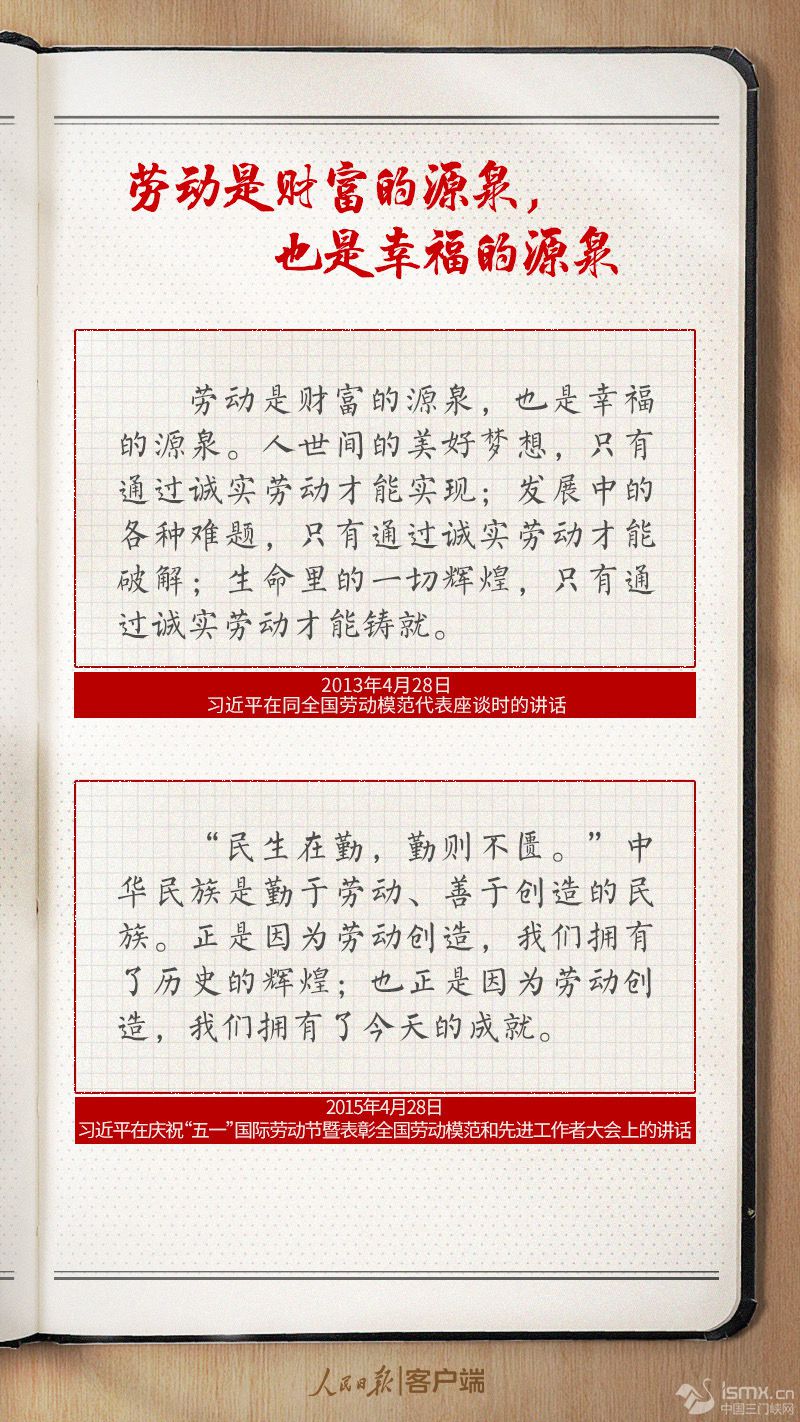 劳动是财富的源泉，
也是幸福的源泉
劳动是财富的源泉，也是幸福
的源泉。人世间的美好梦想，只有
通过诚实劳动才能实现；发展中的
各种难题，只有通过诚实劳动才能
破解；生命里的一切辉煌，只有通
过诚实劳动才能铸就。
2013年4月28日
习近平在同全国劳动模范代表座谈时的讲话
“民生在勤，勤则不匮。”中
华民族是勤于劳动、善于创造的民
族。正是因为劳动创造，我们拥有
了历史的辉煌；也正是因为劳动创
造，我们拥有了今天的成就。
2015年4月28日
习近平在庆祝“五一”国际劳动节暨表彰全国劳动模范和先进工作者大会上的讲话
人民日报|客户端
ismx.cn
中国三门峡网